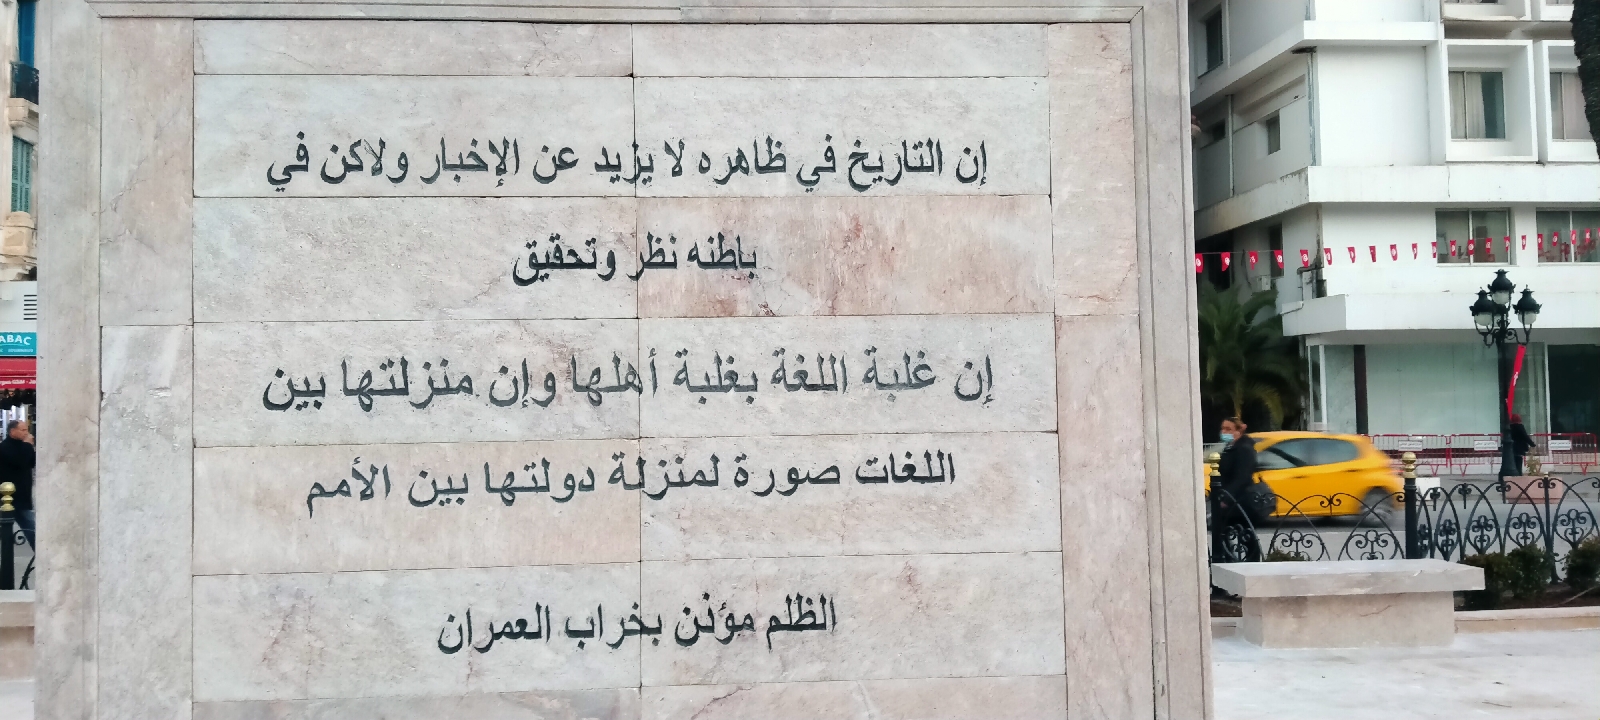 إن التاريخ في ظاهره لا يزيد عن الإخبار ولاكن في
باطنه نظر وتحقيق
إن غلبة اللغة بغلبة أهلها وإن منزلتها بين
اللغات صورة لمنزلة دولتها بين الأمم
الظلم مؤذن بخراب العمران
ABAC